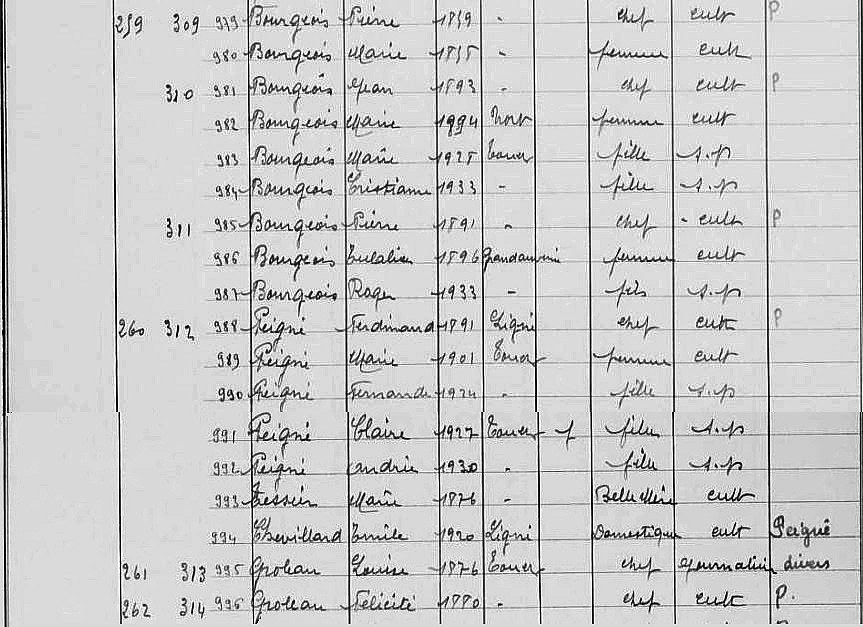 259 309 979 Bourgeois Pierre 1859 - chef cult P
980 Bourgeois Marie 1855 femme cult
310 981 Bourgeois Jean 1893 - chef cult P
982 Bourgeois Marie 1994 Nort femme cult
983 Bourgeois Marie 1925 fille s.p
984 Bourgeois Cristiane 1933 - fille s.p
311 985 Bourgeois Pierre 1891 - chef - cult P
986 Bourgeois Eulalie 1896 femme cult
987 Bourgeois Roger 1933 - fils s.p
260 312 988 Peigné Ferdinand 1891 Ligné chef cult P
989 Peigné Marie 1901 femme cult
990 Peigné Fernande 1924 - fille s.p
991 Peigné Claire 1927 f fille s.p
992 Peigné Andrée 1930 - fille s.p
993 Tessier Marie 1876 - Belle Mère cult
994 Chevillard Emile 1920 Ligné Domestique cult Peigné
261 313 995 Groleau Louise 1876 chef journalière divers
262 314 996 Groleau Félicité 1880 - chef cult P.